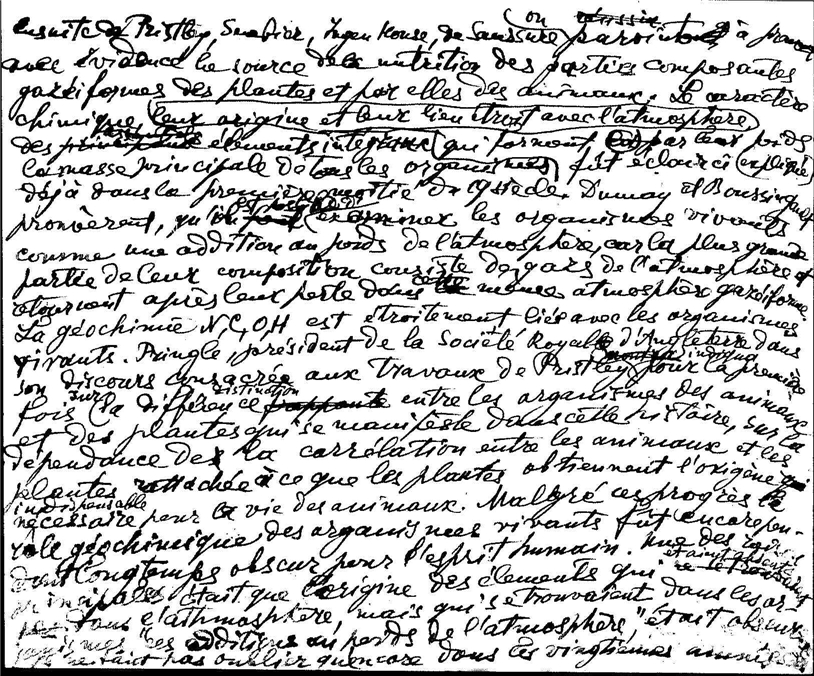 on
ensuite Pristley, Senebier, Ingen House, de Saussure parvint à
avec évidence la source de la nutrition des parties composantes
gazéiformes des plantes et par elles des animaux. Le caractère
chimique, leur origine et leur lien étroit avec l'atmosphère
des éléments intégraux (qui forment par leur poids
la masse principale de tous les organismes) fut éclairci (expliqué)
déjà dans la première moitié du siècle. Dumay et Boussingault
prouvèrent, qu'on examiner les organismes vivants
comme une addition au poids de l'atmosphère, car la plus grande
partie de leur composition consiste de gazs de l'atmosphère et
retournent après leur perte dans même atmosphère gazéiforme.
La géochimie N, C, O, H est étroitement liée avec les organismes
vivants. Pringle, président de la Société Royale d'Angleterre dans
son discours consacrée aux travaux de Pristley pour la première
fois sur (la différence distinction entre les organismes des animaux
et des plantes qui se manifeste dans cette histoire, sur la
dépendance de la corrélation entre les animaux et les
plantes rattachée à ce que les plantes obtiennent l'origine
indispensable
nécessaire pour la vie des animaux. Malgré ces progrès le
rôle géochimique des organismes vivants fut encore pen-
dant longtemps obscur pour l'esprit humain. Une des
principales était que l'origine des éléments qui se trouvaient dans les or-
dans l'athmosphère, mais qui "était obscur
ces additions au poids de l'atmosphère,
pas oublier qu'encore dans les vingtièmes années